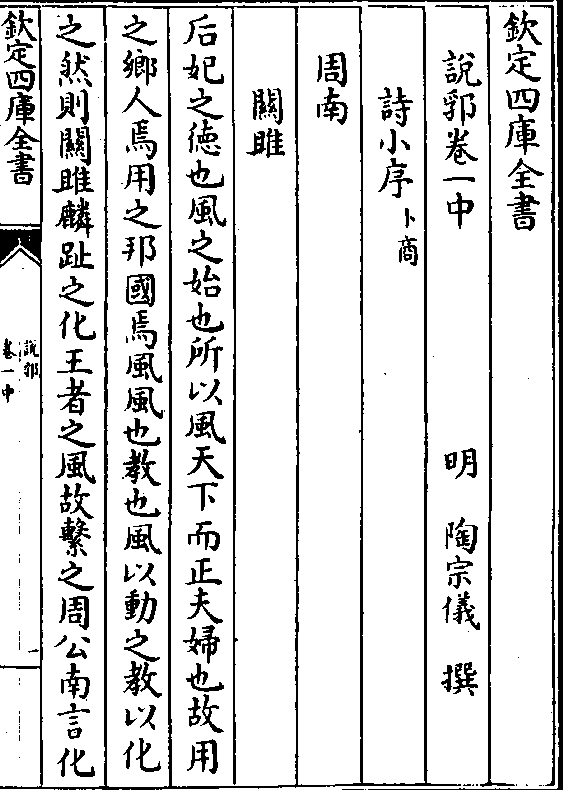 欽定四庫全書
說郛卷一中
明 陶宗儀 撰
詩小序 卜商
周南
關雎
后妃之德也風之始也所以風天下而正夫婦也故用
之鄉人焉用之邦國焉風風也教也風以動之教以化
之然則關雎麟趾之化王者之風故繫之周公南言化
欽定四庫全書
說郛
卷一中
一